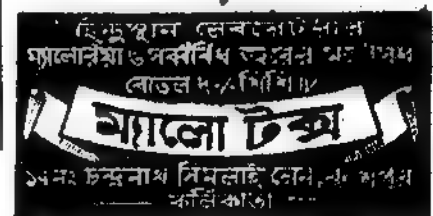 হিন্দুস্থান লেবরেটরীর
ম্যালেরিয়া ও সর্ব্ববিধ জ্বরের
বোতল ৸৹ শিশি
ম্যালো টক্স
চন্দ্রনাথ সিমলাই লেন,
কলিকাতা